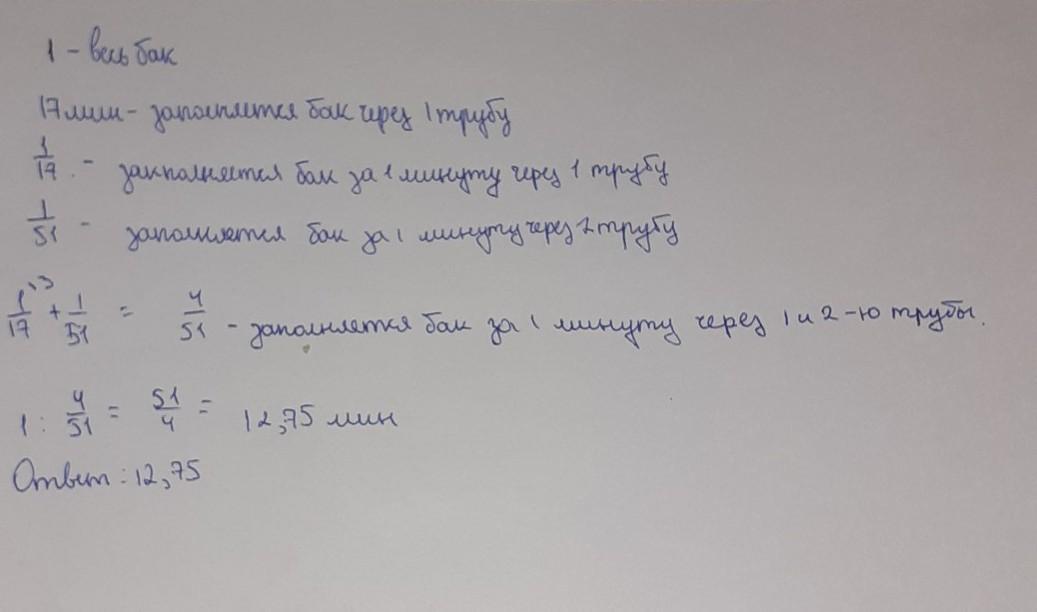 1 - весь бак
17 мин - заполняется бак через 1 трубу
1/17 - закполняется бак за 1 минуту через 1 трубу
1/51 - заполняется бак за 1 минуту через 2 трубу
1\3/17 + 1/51 = 4/51 - заполняется бак за 1 минуту через 1 и 2-ю трубы.
1 : 4/51 = 51/4 = 12,75 мин
Ответ: 12,75